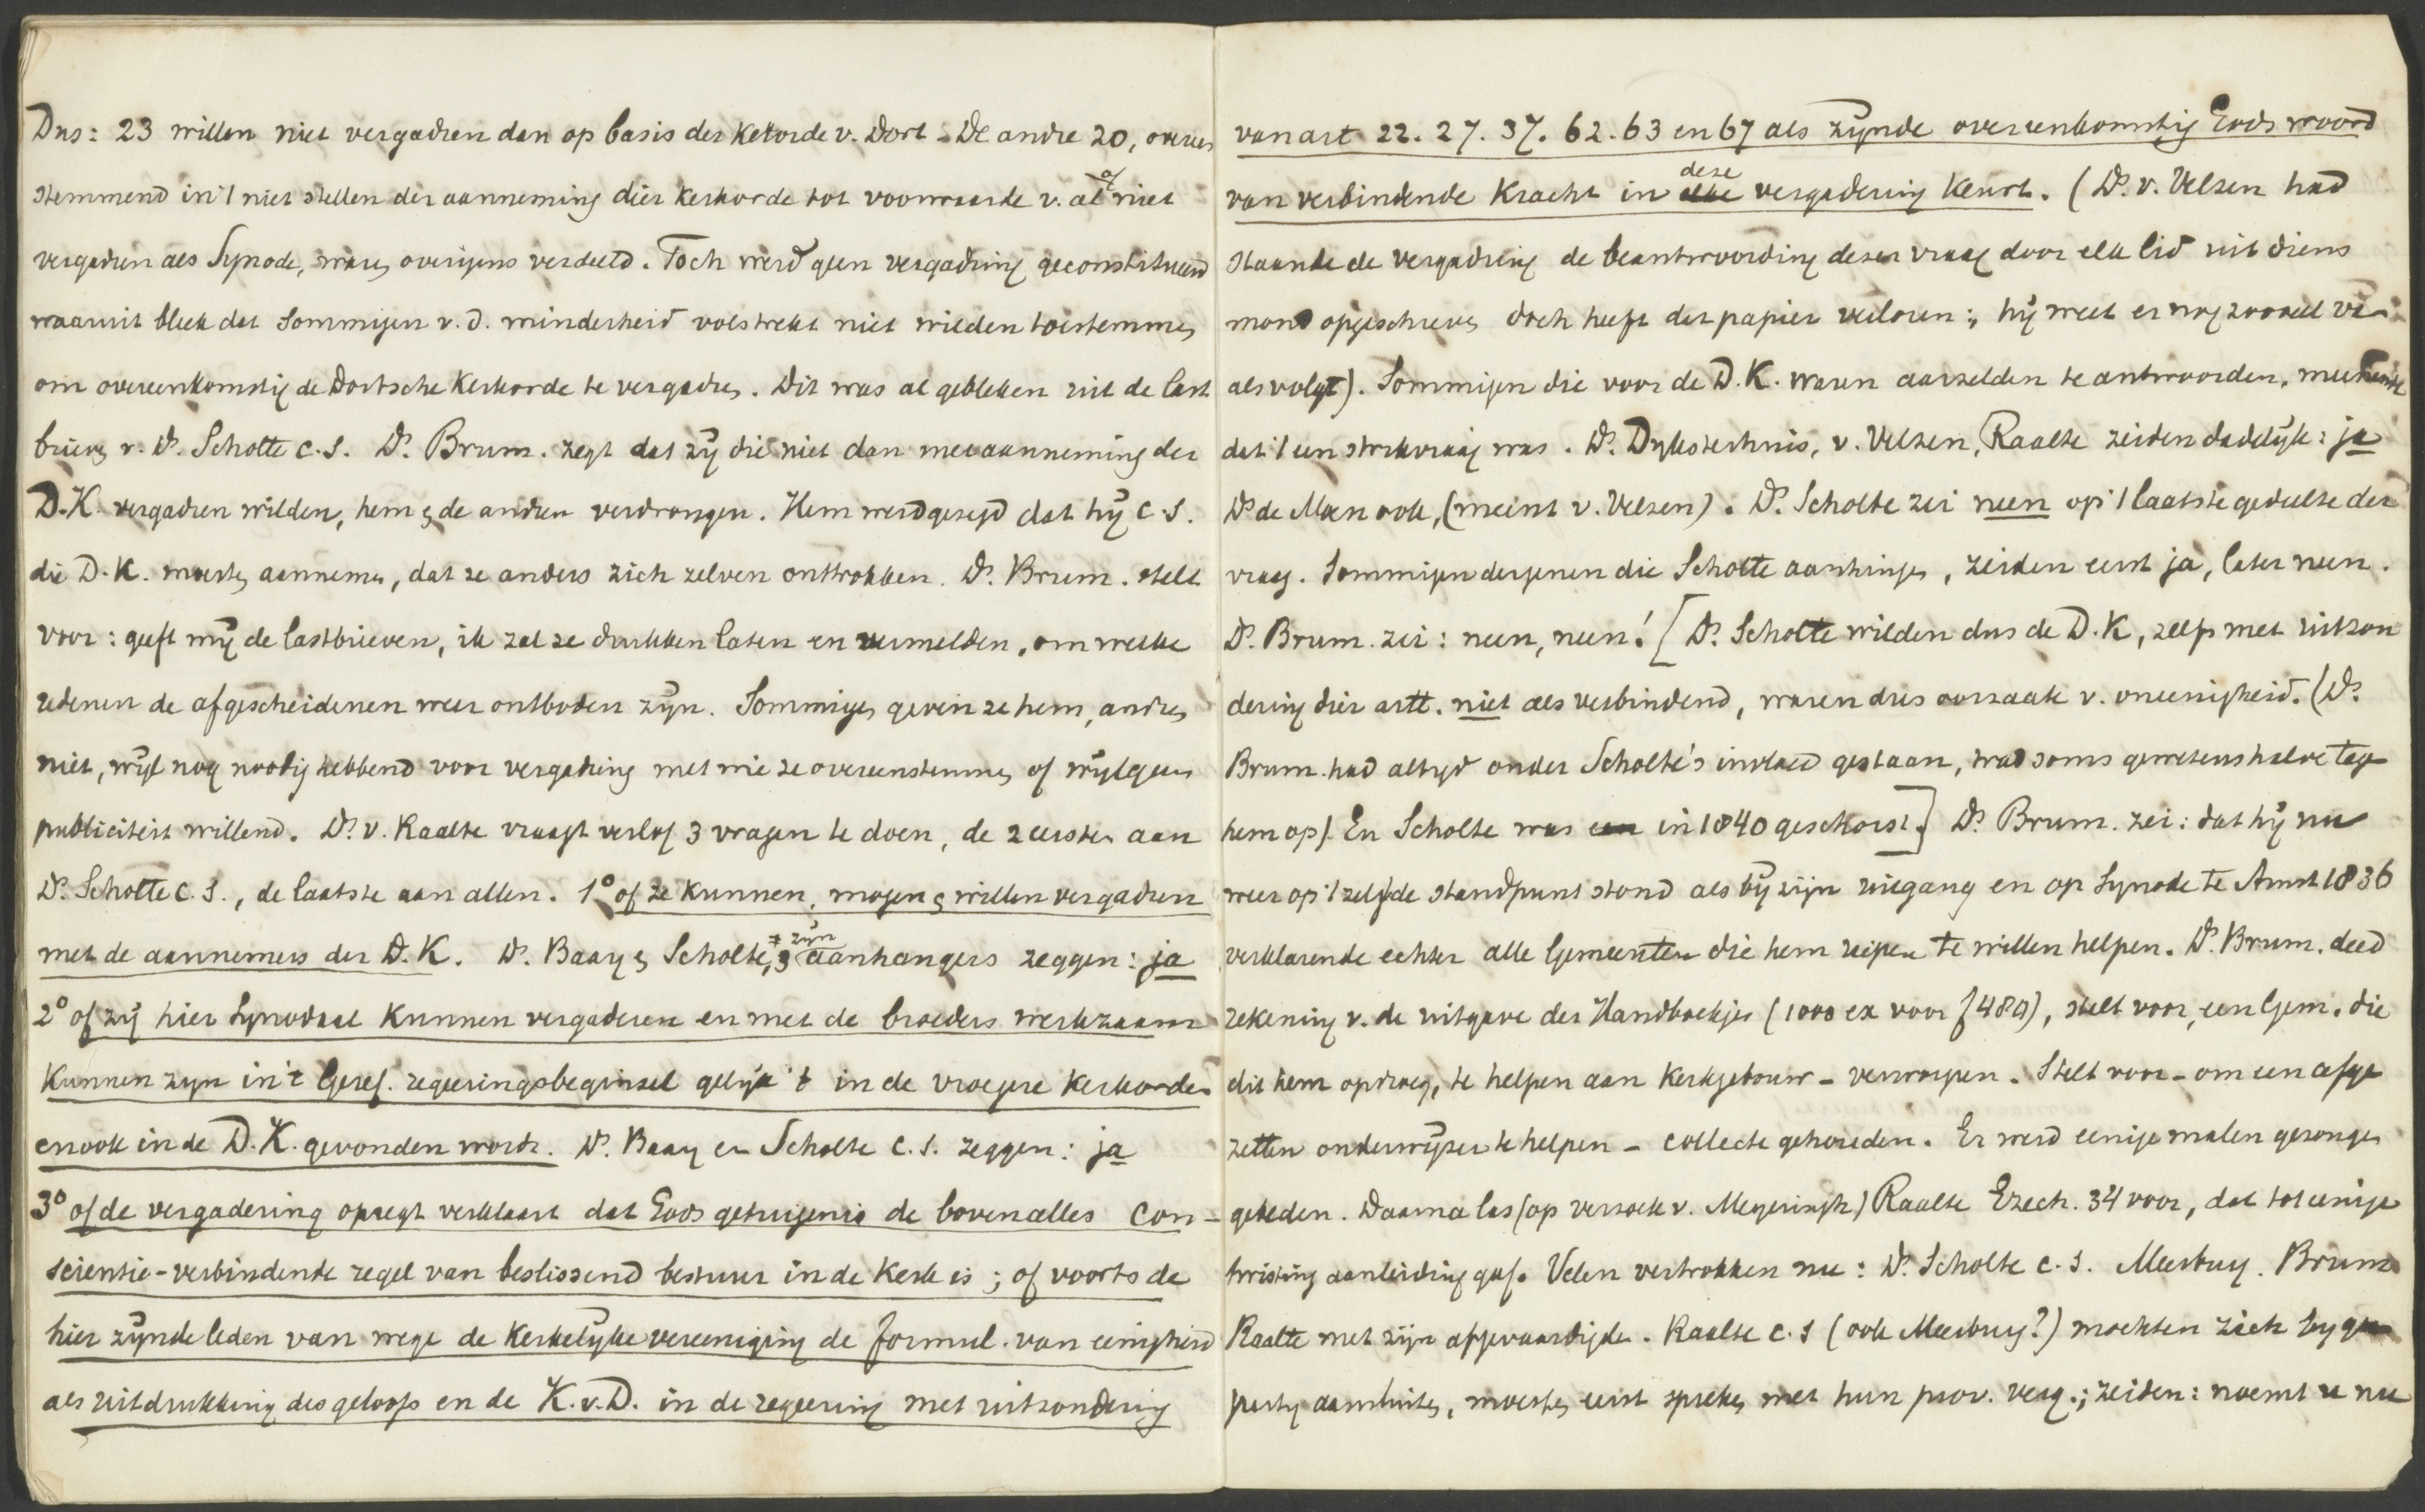 Dus: 23 willen niet vergadren dan op basis der Kerkorde v. Dort - De andre 20, overeen
stemmend in 't niet stellen der aanneming dier Kerkorde tot voorwaarde v. al of niet
vergadren als Synode, waren overigens verdeeld. Toch werd geen vergadring geconstitueerd
waaruit bleek dat sommigen v. d. minderheid volstrekt niet wilden toestemmen
om overeenkomstig de Dortsche Kerkorde te vergadren. Dit was al gebleken uit de last
brieven v. Ds. Scholte c.s. Ds. Brum. zegt dat zij die niet dan met aanneming der
D.K. vergadren wilden, hem & de andren verdrongen. Hem werd gezegd dat hij c.s.
die D.K. moesten aannemen, dat ze anders zich zelven onttrokken. Ds. Brum. stelt
voor: geeft mij de lastbrieven, ik zal ze drukken laten en vermelden, om welke
redenen de afgescheidenen weer ontboden zijn. Sommigen geven ze hem, andren
niet, wijl nog noodig hebbend voor vergadring met wie ze overeenstemmen of wijl geen
publiciteit willend. Ds. v. Raalte vraagt verlof 3 vragen te doen, de 2 eersten aan
Ds. Scholte c.s., de laatste aan allen. 1° of ze kunnen, mogen & willen vergadren
met de aannemers der D.K. Ds. Baay & Scholte, & zijn aanhangers zeggen: ja
2° of zij hier Synodaal kunnen vergaderen en met de broeders werkzaam
kunnen zijn in 't Geref. regeeringsbeginsel gelijk 't in de vroegere Kerkorden
en ook in de D.K. gevonden wordt. Ds. Baay en Scholte c.s. zeggen: ja
3° of de vergadering opregt verklaart dat Gods getuigenis de boven alles con-
scientie-verbindende regel van beslissend bestuur in de Kerk is; of voorts de
hier zijnde leden van wege de Kerkelijke vereeniging de formul. van eenigheid
als uitdrukking des geloofs en de K.v.D. in de regeering met uitzondering
van art 22. 27. 37. 62. 63 en 67 als zijnde overeenkomstig Gods woord
van verbindende kracht in deze vergadering keurt. (Ds. v. Velzen had
staande de vergadring de beantwoording dezer vraag door elk lid uit diens
mond opgeschreven doch heeft dat papier verloren: hij weet er nog zooveel van
als volgt). Sommigen die voor de D.K. waren aarzelden te antwoorden, meenende
dat 't een strikvraag was. Ds. Dyksterhuis, v. Velzen, Raalte zeiden dadelijk: ja
Ds de Moen ook, (meint v. Velzen). Ds. Scholte zei neen op 't laatste gedeelte der
vraag. Sommigen dergenen die Scholte aanhingen, zeiden eerst ja, later neen.
Ds. Brum. zei: neen, neen! [Ds. Scholte wilden dus de D.K, zelfs met uitzon
dering dier artt. niet als verbindend, waren dus oorzaak v. oneenigheid. (Ds.
Brum. had altijd onder Scholte's invloed gestaan, trad soms gewetenshalve tegen
hem op). En Scholte was in 1840 geschorst.] Ds. Brum. zei: dat hij nu
weer op 't zelfde standpunt stond als bij zijn uitgang en op Synode te Amst 1836
verklarende echter alle Gemeenten die hem riepen te willen helpen. Ds. Brum. deed
rekening v. de uitgave der Handboekjes (1000 ex voor f 489), stelt voor, een Gem. die
dit hem opdroeg, te helpen aan Kerkgebouw - verworpen. Stelt voor - om een afge
zetten onderwijzer te helpen - collecte gehouden. Er werd eenige malen gezongen
gebeden. Daarna las (op verzoek v. Meyeringh) Raalte Ezech. 34 voor, dat tot eenige
twisting aanleiding gaf. Velen vertrokken nu: Ds. Scholte c.s. Meerburg. Brum.
Raalte met zijn afgevaardigden. Raalte c.s (ook Meerburg?) mochten zich by geen
party aansluiten, moesten eerst spreken met hun prov. verg.; zeiden: noemt u nu